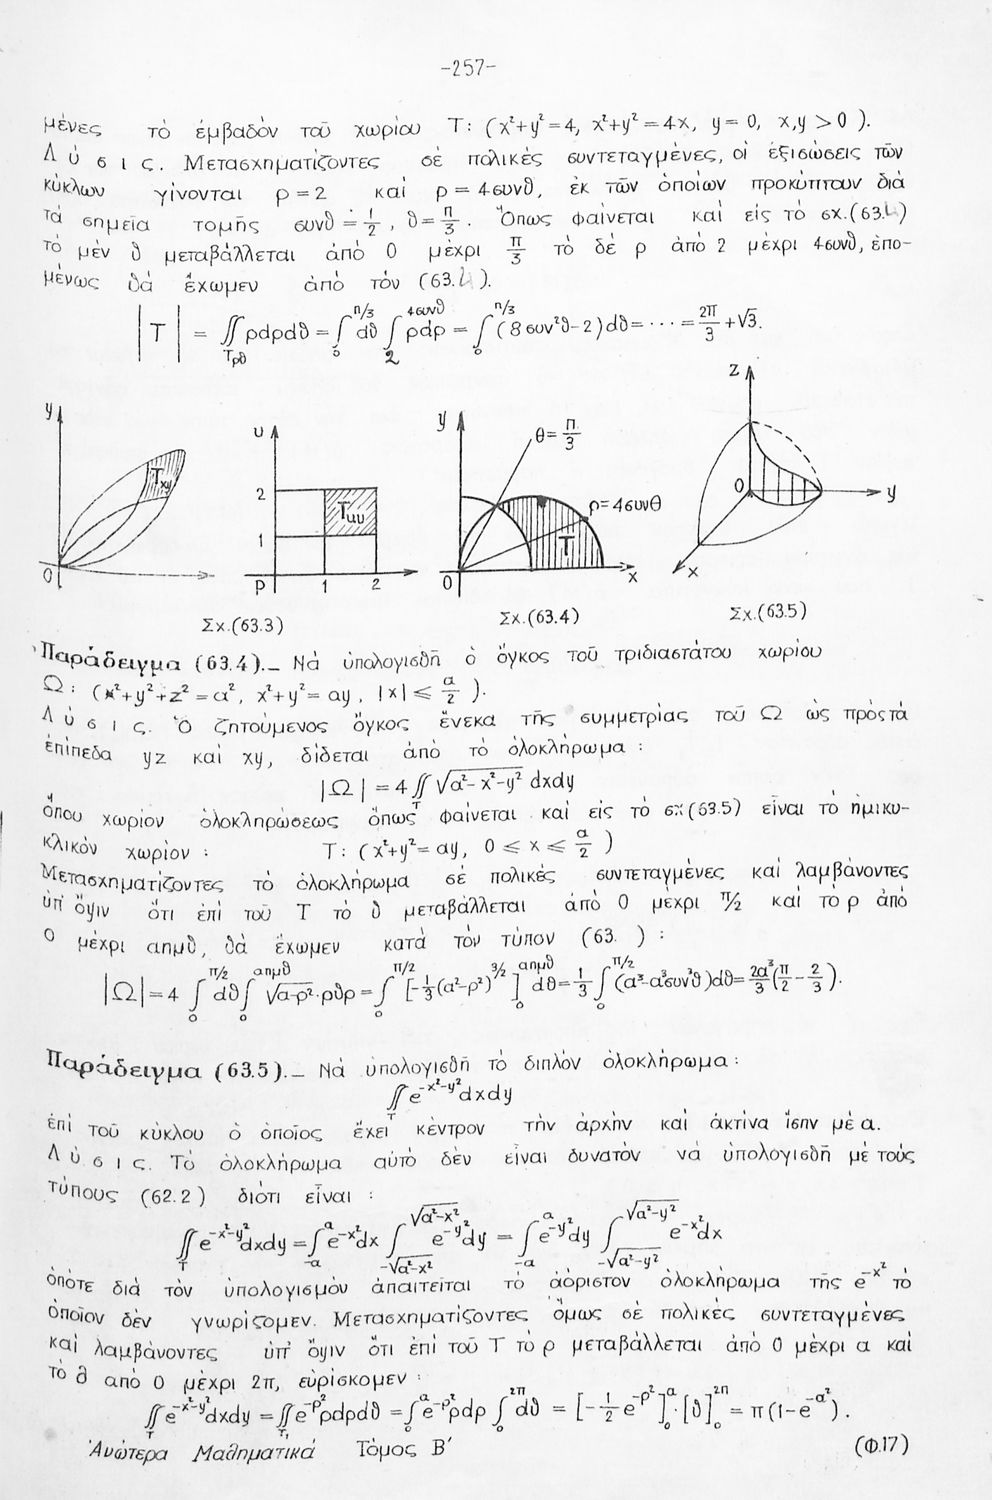 -257-
μένες τό ἐμβαδόν τοῦ χωρίου T: (x²+y²=4, x²+y²=4x, y=0, x,y>0 ).
Λ ύ σ ι ς. Μετασχηματίζοντες σέ πολικές συντεταγμένες, οἱ ἐξισώσεις τῶν
κύκλων γίνονται ρ=2 καί ρ=4συνθ, ἐκ τῶν ὁποίων προκύπτουν διά
τά σημεῖα τομῆς συνθ = 1/2, θ= π/3. Ὅπως φαίνεται καί εἰς τό σχ.(63.4)
τό μέν θ μεταβάλλεται ἀπό 0 μέχρι π/3 τό δέ ρ ἀπό 2 μέχρι 4συνθ, ἑπο-
μένως θά ἔχωμεν ἀπό τόν (63.4).
|T| = ∬_{Tρθ} ρdρdθ = ∫_0^{π/3} dθ ∫_2^{4συνθ} ρdρ = ∫_0^{π/3} (8συν²θ-2)dθ = ··· = 2π/3 +√3.
y
Txy
0
υ
2
1
Tuυ
ρ 1 2
y
θ= π/3
ρ=4συνθ
T
0 x
z
0
y
x
Σχ.(63.3)
Σχ.(63.4)
Σχ.(63.5)
Παράδειγμα (63.4)._ Νά ὑπολογισθῆ ὁ ὄγκος τοῦ τριδιαστάτου χωρίου
Ω: (x²+y²+z²=α², x²+y²=αy, |x| ≤ α/2 ).
Λ ύ σ ι ς. Ὁ ζητούμενος ὄγκος ἕνεκα τῆς συμμετρίας τοῦ Ω ὡς πρός τά
ἐπίπεδα yz καί xy, δίδεται ἀπό τό ὁλοκλήρωμα :
|Ω| = 4 ∬_T √(α²-x²-y²) dxdy
ὅπου χωρίον ὁλοκληρώσεως ὅπως φαίνεται καί εἰς τό σχ(63.5) εἶναι τό ἡμικυ-
κλικόν χωρίον : T: (x²+y²=αy, 0 ≤ x ≤ α/2 )
Μετασχηματίζοντες τό ὁλοκλήρωμα σέ πολικές συντεταγμένες καί λαμβάνοντες
ὑπ' ὄψιν ὅτι ἐπί τοῦ T τό θ μεταβάλλεται ἀπό 0 μέχρι π/2 καί τό ρ ἀπό
0 μέχρι αημθ, θά ἔχωμεν κατά τόν τύπον (63. ) :
|Ω| = 4 ∫_0^{π/2} dθ ∫_0^{αημθ} √(α-ρ²)·ρθρ = ∫_0^{π/2} [-1/3(α²-ρ²)^{3/2}]_0^{αημθ} dθ = 1/3 ∫_0^{π/2} (α³-α³συν³θ)dθ = 2α³/3 (π/2 - 2/3).
Παράδειγμα (63.5)._ Νά ὑπολογισθῆ τό διπλόν ὁλοκλήρωμα :
∬_T e^{-x²-y²}dxdy
ἐπί τοῦ κύκλου ὁ ὁποῖος ἔχει κέντρον τήν ἀρχήν καί ἀκτίνα ἴσην μέ α.
Λ ύ σ ι ς. Τό ὁλοκλήρωμα αὐτό δέν εἶναι δυνατόν νά ὑπολογισθῆ μέ τούς
τύπους (62.2) διότι εἶναι :
∬_T e^{-x²-y²}dxdy = ∫_{-α}^{α} e^{-x²}dx ∫_{-√(α²-x²)}^{√(α²-x²)} e^{-y²}dy = ∫_{-α}^{α} e^{-y²}dy ∫_{-√(α²-y²)}^{√(α²-y²)} e^{-x²}dx
ὁπότε διά τόν ὑπολογισμόν ἀπαιτεῖται τό ἀόριστον ὁλοκλήρωμα τῆς e^{-x²} τό
ὁποῖον δέν γνωρίζομεν. Μετασχηματίζοντες ὅμως σέ πολικές συντεταγμένες
καί λαμβάνοντες ὑπ' ὄψιν ὅτι ἐπί τοῦ T τό ρ μεταβάλλεται ἀπό 0 μέχρι α καί
τό θ ἀπό 0 μέχρι 2π, εὑρίσκομεν :
∬_T e^{-x²-y²}dxdy = ∬_{T₁} e^{-ρ²}ρdρdθ = ∫_0^α e^{-ρ²}ρdρ ∫_0^{2π} dθ = [-1/2 e^{-ρ²}]_0^α · [θ]_0^{2π} = π(1-e^{-α²}).
Ἀνώτερα Μαθηματικά Τόμος Β΄ (Φ.17)